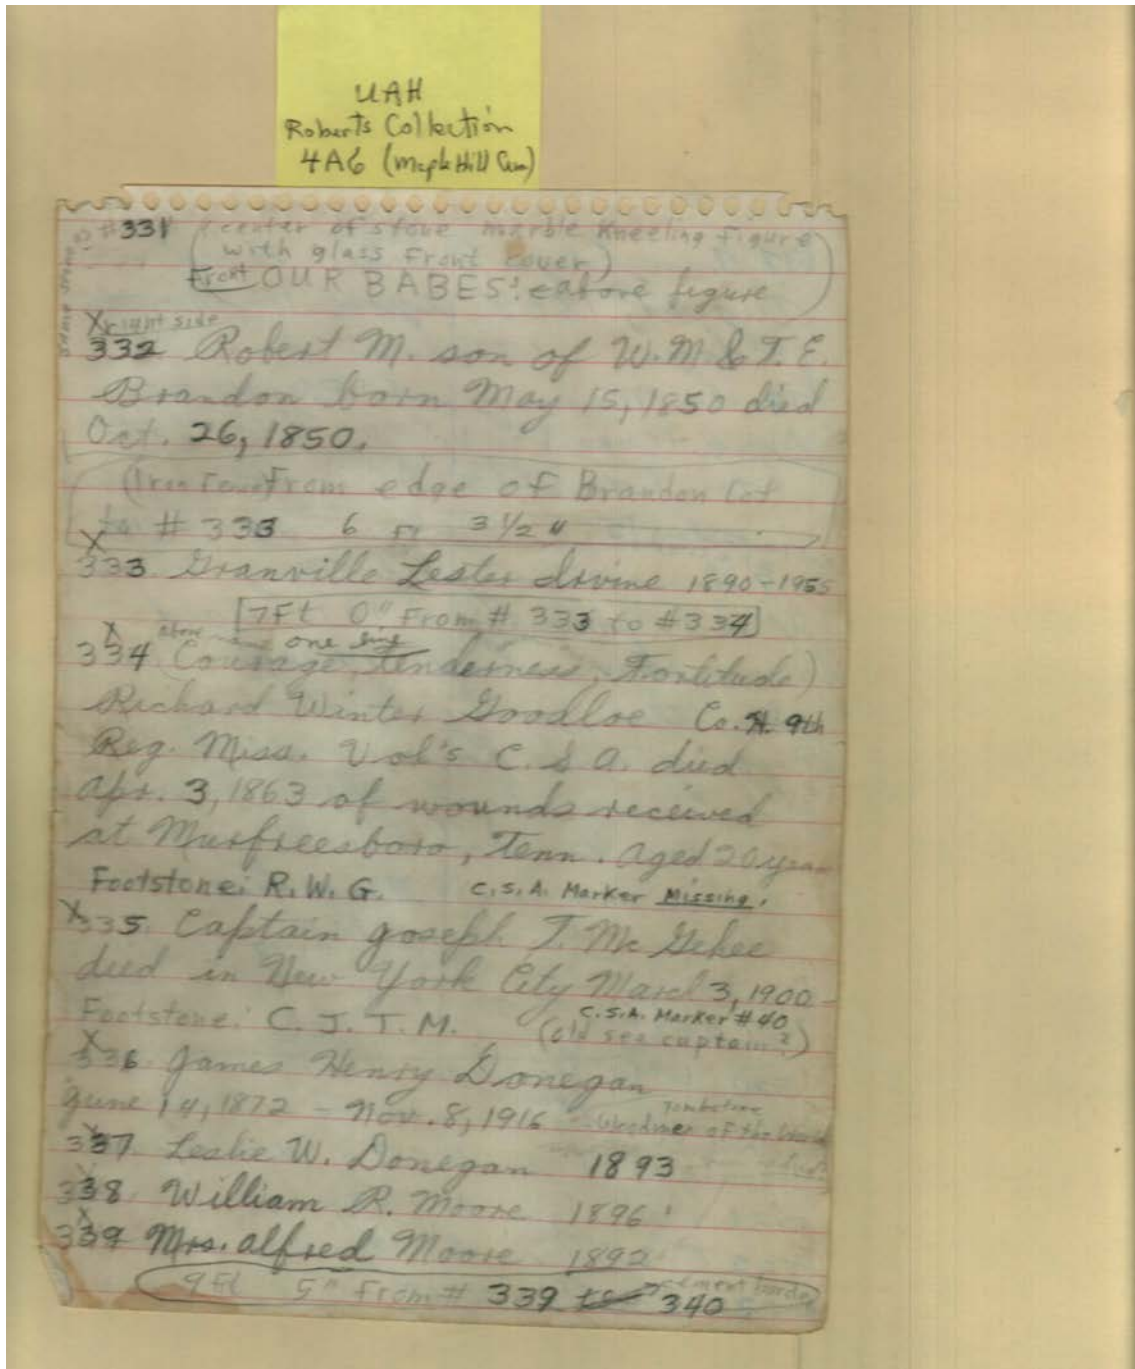 UAH
Roberts Collection
4A6 (Maple Hill Cem)
#331 (center of stone marble kneeling figure
with glass front cover)
Front OUR BABES: above figure
same stone
X right side
332 Robert M. son of W.M & T.E.
Brandon born May 15, 1850 died
Oct. 26, 1850.
(Iron fence from edge of Brandon Lot
to # 333 6 ft 3 1/2 "
X
333 Granville Lester Irvine 1890-1955
7Ft 0" From # 333 to #334
X above one line
334 (Courage, Tenderness, Fortitude)
Richard Winter Goodloe Co. H. 9th
Reg. Miss. Vol's C. S. A. died
Apr. 3, 1863 of wounds received
at Murfreesboro, Tenn. Aged 20 years
Footstone: R. W. G. C.S.A. Marker Missing.
X335. Captain Joseph T. McGehee
died in New York City March 3, 1900.
Footstone: C. J. T. M. C.S.A. Marker #40
(old sea captain?)
X
336. James Henry Donegan
June 14, 1872 - Nov. 8, 1916 tombstone
Woodmen of the World
X
337 Leslie W. Donegan 1893
X
338 William R. Moore 1896
X
339 Mrs. Alfred Moore 1892
9 ft 5" From # 339 to 340 cement border